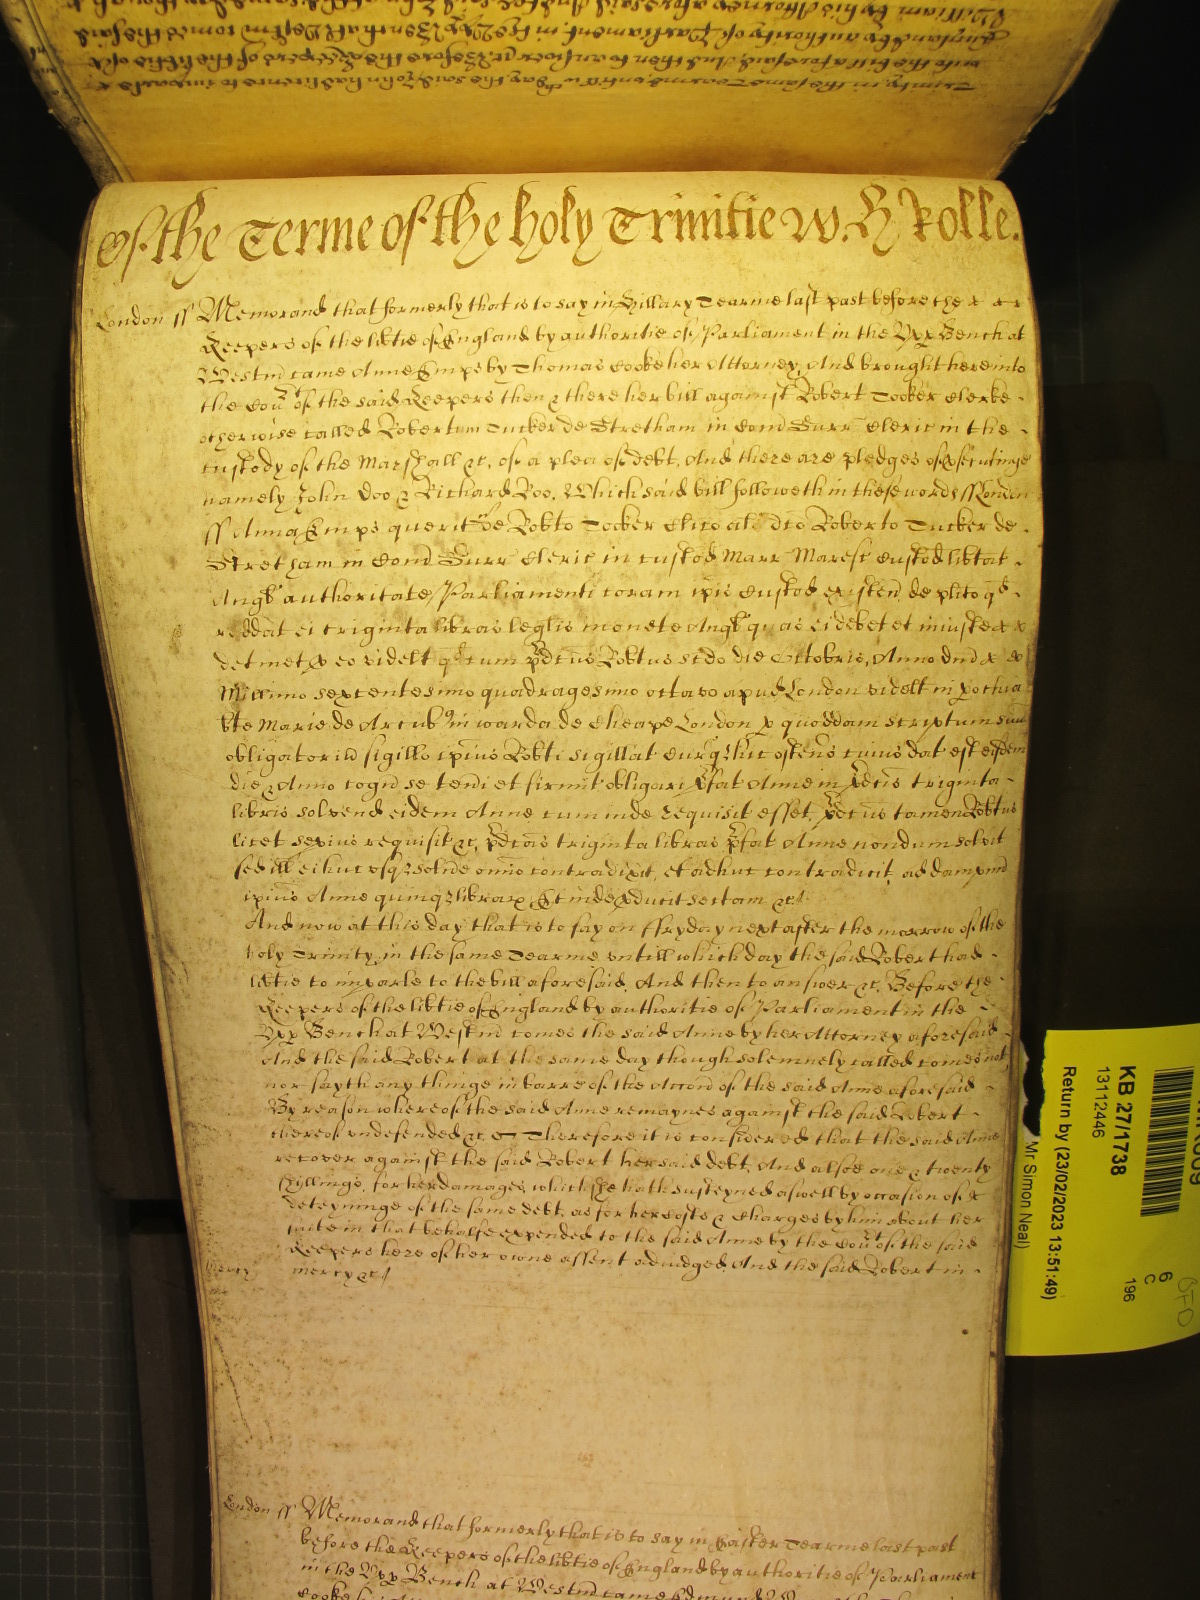 Of the Terme of the holy Trinitie W. H Rolle.
London ss Memorand that formerly that is to say in Hillary Tearme last past before the
Keepers of the libtie of England by authoritie of Parliament in the Vpp Bench at
Westm came Anne Emps by Thomas Cooke her Attorney, And brought here into
the Cou^rt of the said Keepers then & there her bill against Robert Tooker Clerke
otherwise called Robertum Tucker de Stretham in Com Surr Cleric in the
custody of the Marshall &c. of a plea of debt, And there are pledges of psecutinge
namely John Doo & Richard Roo. Which said bill followeth in these words ss London
ss Anna Emps querit de Robto Tocker Clico al dco Roberto Tucker de
Stretham in Com Surr Cleric in custod Marr Maresc Custod libtat
Angl authoritate Parliamenti coram ipis Custod existen de plito qd
reddat ei triginta libras leglis monete Angl quas ei debet et iniuste
detinet p eo videlt qd cum pdcus Robtus scdo die Octobris, Anno dni
Millimo sexcentesimo quadragesimo octavo apud London videlt in pochia
bte Marie de Arcub in warda de Cheape London p quoddam scriptum suu
obligatoriu sigillo ipius Robti sigillat Curq hic ostens cuius dat est eisdem
die & Anno cogn se teneri et firmit obligari pfat Anne in pdcis triginta
libris solvend eidem Anne cum inde requisit esset, pdcus tamen Robtus
licet sepius requisit &c. pdcas triginta libras pfat Anne nondum solvit
sed ill ei huc usq solvere omio contradixit, et adhuc contradicit, ad dampnu
ipius Anne quinq librar, Et inde pducit sectam &c
And now at this day that is to say on ffryday next after the morrow of the
holy Trinity in the same Tearme untill which day the said Robert had
libtie to imparle to the bill aforesaid, And then to answer &c. Before the
Keepers of the libtie of England by authoritie of Parliament in the
Vpp Bench at Westm comes the said Anne by her Attorney aforesaid
And the said Robert at the same day though solemnely called comes not
nor sayth any thinge in barre of the Accon of the said Anne aforesaid
By reason whereof the said Anne remaynes against the said Robert
thereof undefended &c Therefore it is considered that the said Anne
recover against the said Robert her said debt, And alsoe one & twenty
shillings for her damages which she hath susteyned aswell by occasion of
deteyninge of the same debt, as for her costs & Charges by him about her
suite in that behalfe expended to the said Anne by the Cou^rt of the said
Keepers here of her owne assent adiudged And the said Robert in
Mercy mercy &c
London ss Memorand that formerly that is to say in Easter Tearme last past
before the Keepers of the libtie of England by authoritie of Parliament
in the Vpp Bench at Westm came Edmund
KB 27/1738
13112446
Return by (23/02/2023 13:51:49)
Mr Simon Neal)
6
C
196